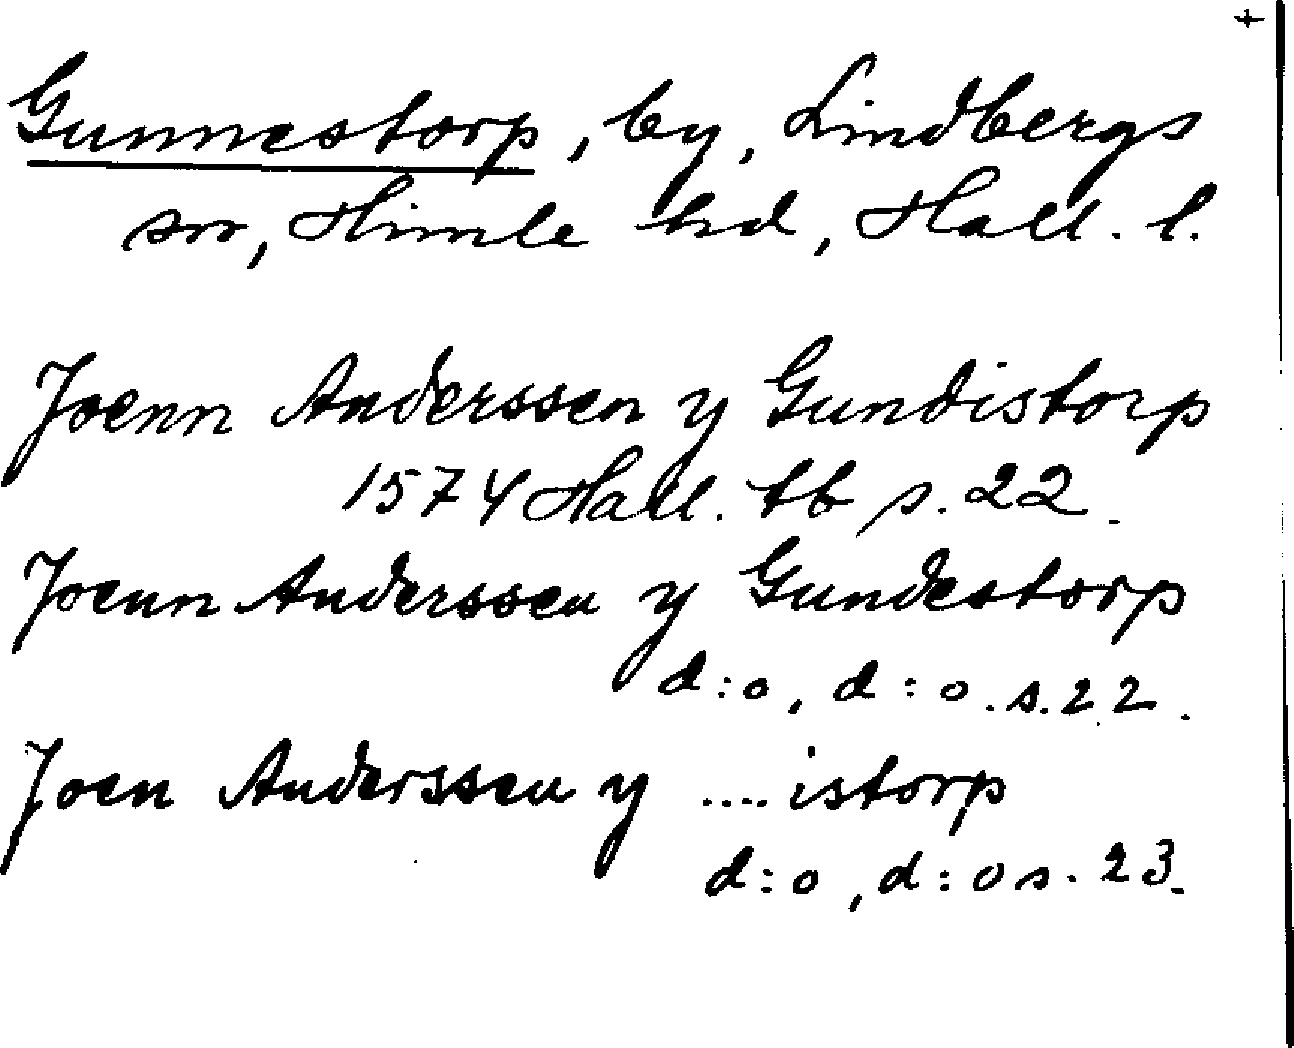 +
Gunnestorp, by, Lindbergs
sn, Himle hd, Hall. l.
Joenn Anderssen y Gundistorp
1574 Hall. tb s. 22.
Joenn Anderssen y Gundestorp
d:o, d:o. s. 22.
Joen Anderssen y .... istorp
d:o, d:o s. 23.